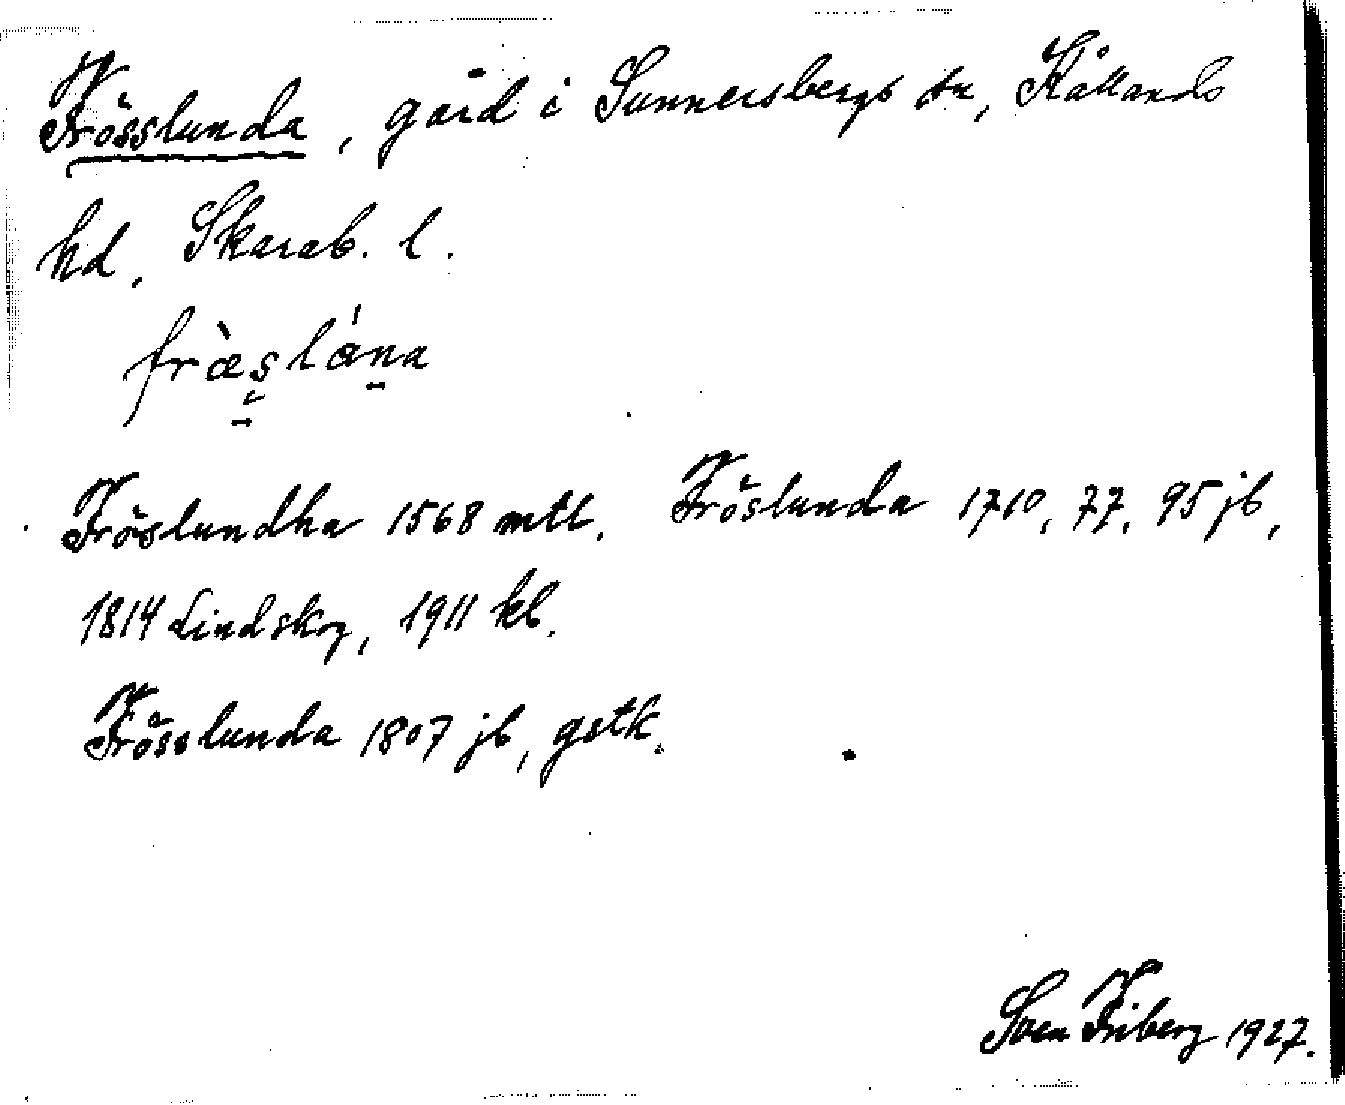 Frösslunda, gård i Sunnersbergs sn, Kållands
hd. Skarab. l.
fræ̀slǻna
Fröslundha 1568 mtl. Fröslunda 1710, 77, 95 jb,
1814 Lindskog, 1911 kb.
Frösslunda 1807 jb, gstk.
Sven Friberg 1927.